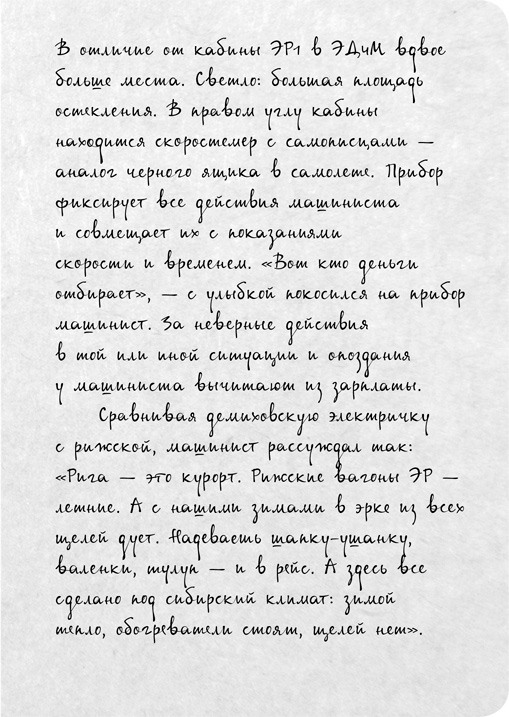 В отличие от кабины ЭР1 в ЭД4М вдвое
больше места. Светло: большая площадь
остекления. В правом углу кабины
находится скоростемер с самописцами —
аналог черного ящика в самолете. Прибор
фиксирует все действия машиниста
и совмещает их с показаниями
скорости и временем. «Вот кто деньги
отбирает», — с улыбкой покосился на прибор
машинист. За неверные действия
в той или иной ситуации и опоздания
у машиниста вычитают из зарплаты.
Сравнивая демиховскую электричку
с рижской, машинист рассуждал так:
«Рига — это курорт. Рижские вагоны ЭР —
летние. А с нашими зимами в эрке из всех
щелей дует. Надеваешь шапку-ушанку,
валенки, тулуп — и в рейс. А здесь все
сделано под сибирский климат: зимой
тепло, обогреватели стоят, щелей нет».